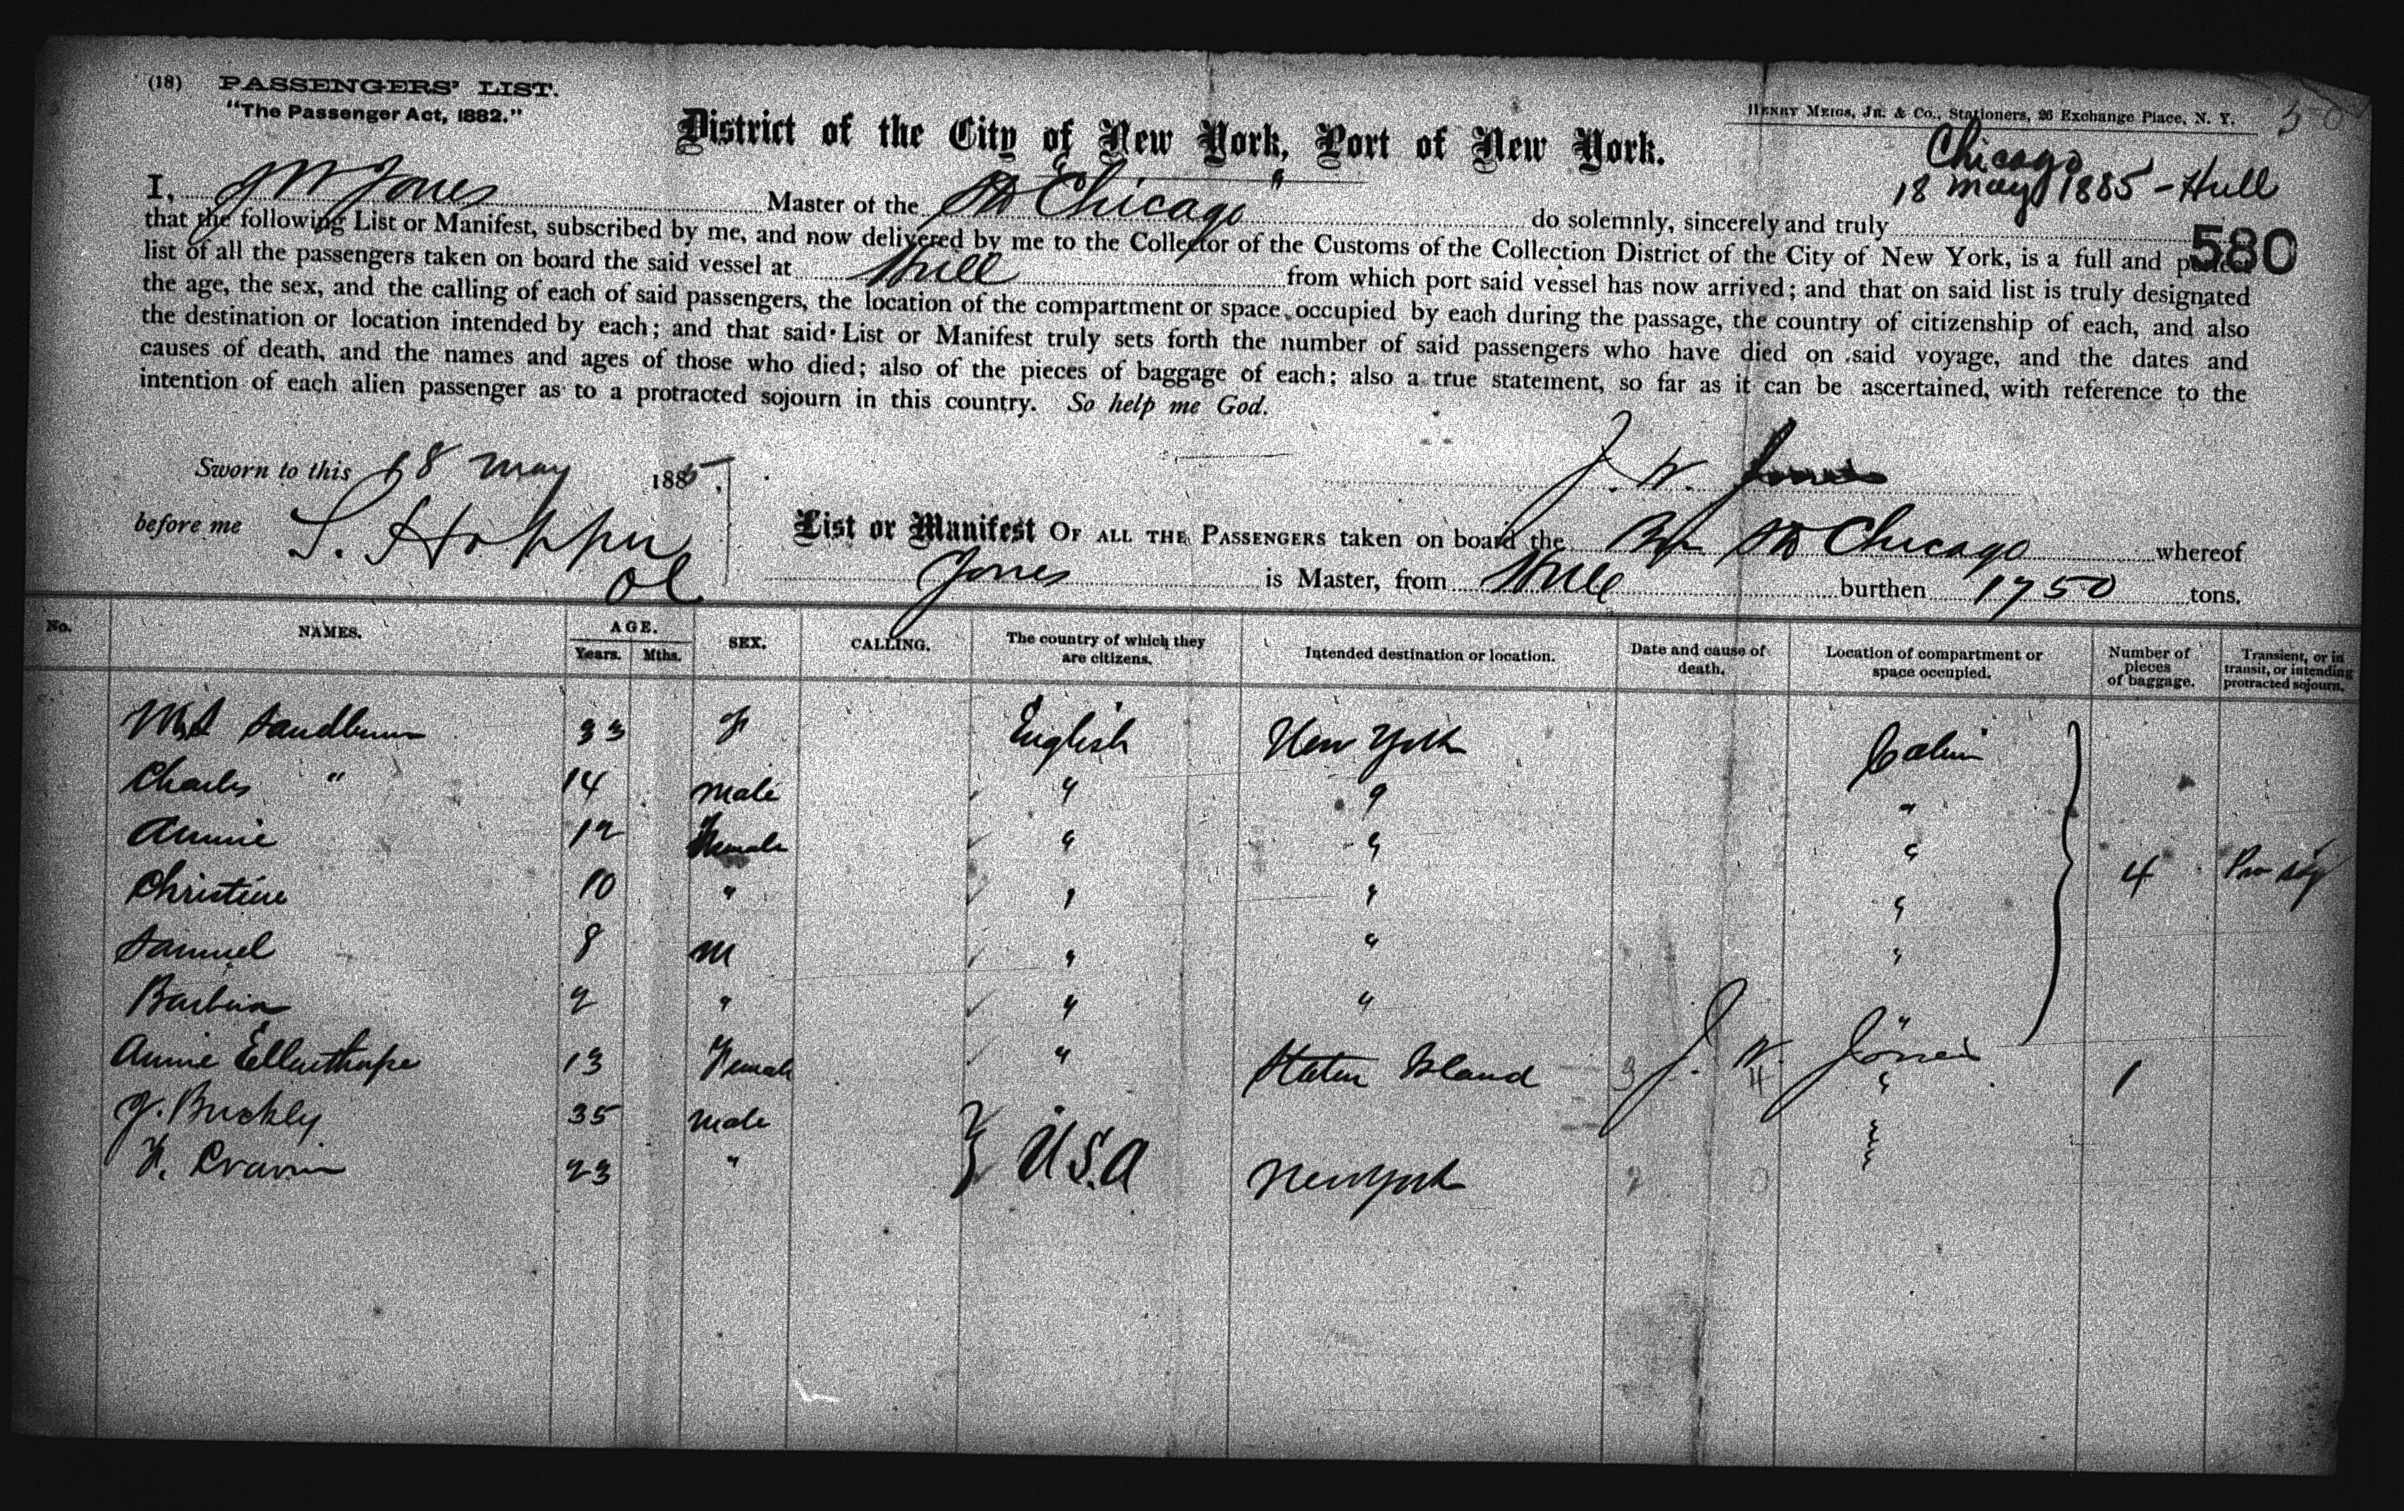 (18) PASSENGERS' LIST.
"The Passenger Act, 1882."
HENRY MEIGS, JR. & CO., Stationers, 26 Exchange Place, N. Y.
District of the City of New York, Port of New York.
Chicago
18 May 1885 - Hull
580
I, J W Jones Master of the SS "Chicago" do solemnly, sincerely and truly
that the following List or Manifest, subscribed by me, and now delivered by me to the Collector of the Customs of the Collection District of the City of New York, is a full and perfect
list of all the passengers taken on board the said vessel at Hull from which port said vessel has now arrived; and that on said list is truly designated
the age, the sex, and the calling of each of said passengers, the location of the compartment or space occupied by each during the passage, the country of citizenship of each, and also
the destination or location intended by each; and that said List or Manifest truly sets forth the number of said passengers who have died on said voyage, and the dates and
causes of death, and the names and ages of those who died; also of the pieces of baggage of each; also a true statement, so far as it can be ascertained, with reference to the
intention of each alien passenger as to a protracted sojourn in this country. So help me God.
Sworn to this 18 May 1885,
J. W. Jones
before me S. Hopper
List or Manifest OF ALL THE PASSENGERS taken on board the Br SS Chicago whereof
Jones is Master, from Hull burthen 1750 tons.
No. NAMES. AGE. Years. Mths. SEX. CALLING. The country of which they are citizens. Intended destination or location. Date and cause of death. Location of compartment or space occupied. Number of pieces of baggage. Transient, or in transit, or intending protracted sojourn.
Mrs 33 F English New York Cabin
Charles " 14 Male " " "
Annie 12 Female " " "
Christine 10 " " " " 4
Samuel 8 M " " "
2 " " " "
Annie Ellenthorpe 13 Female " Staten Island " 1
J. W. Jones
J. Buckly 35 Male
23 " U.S.A New York